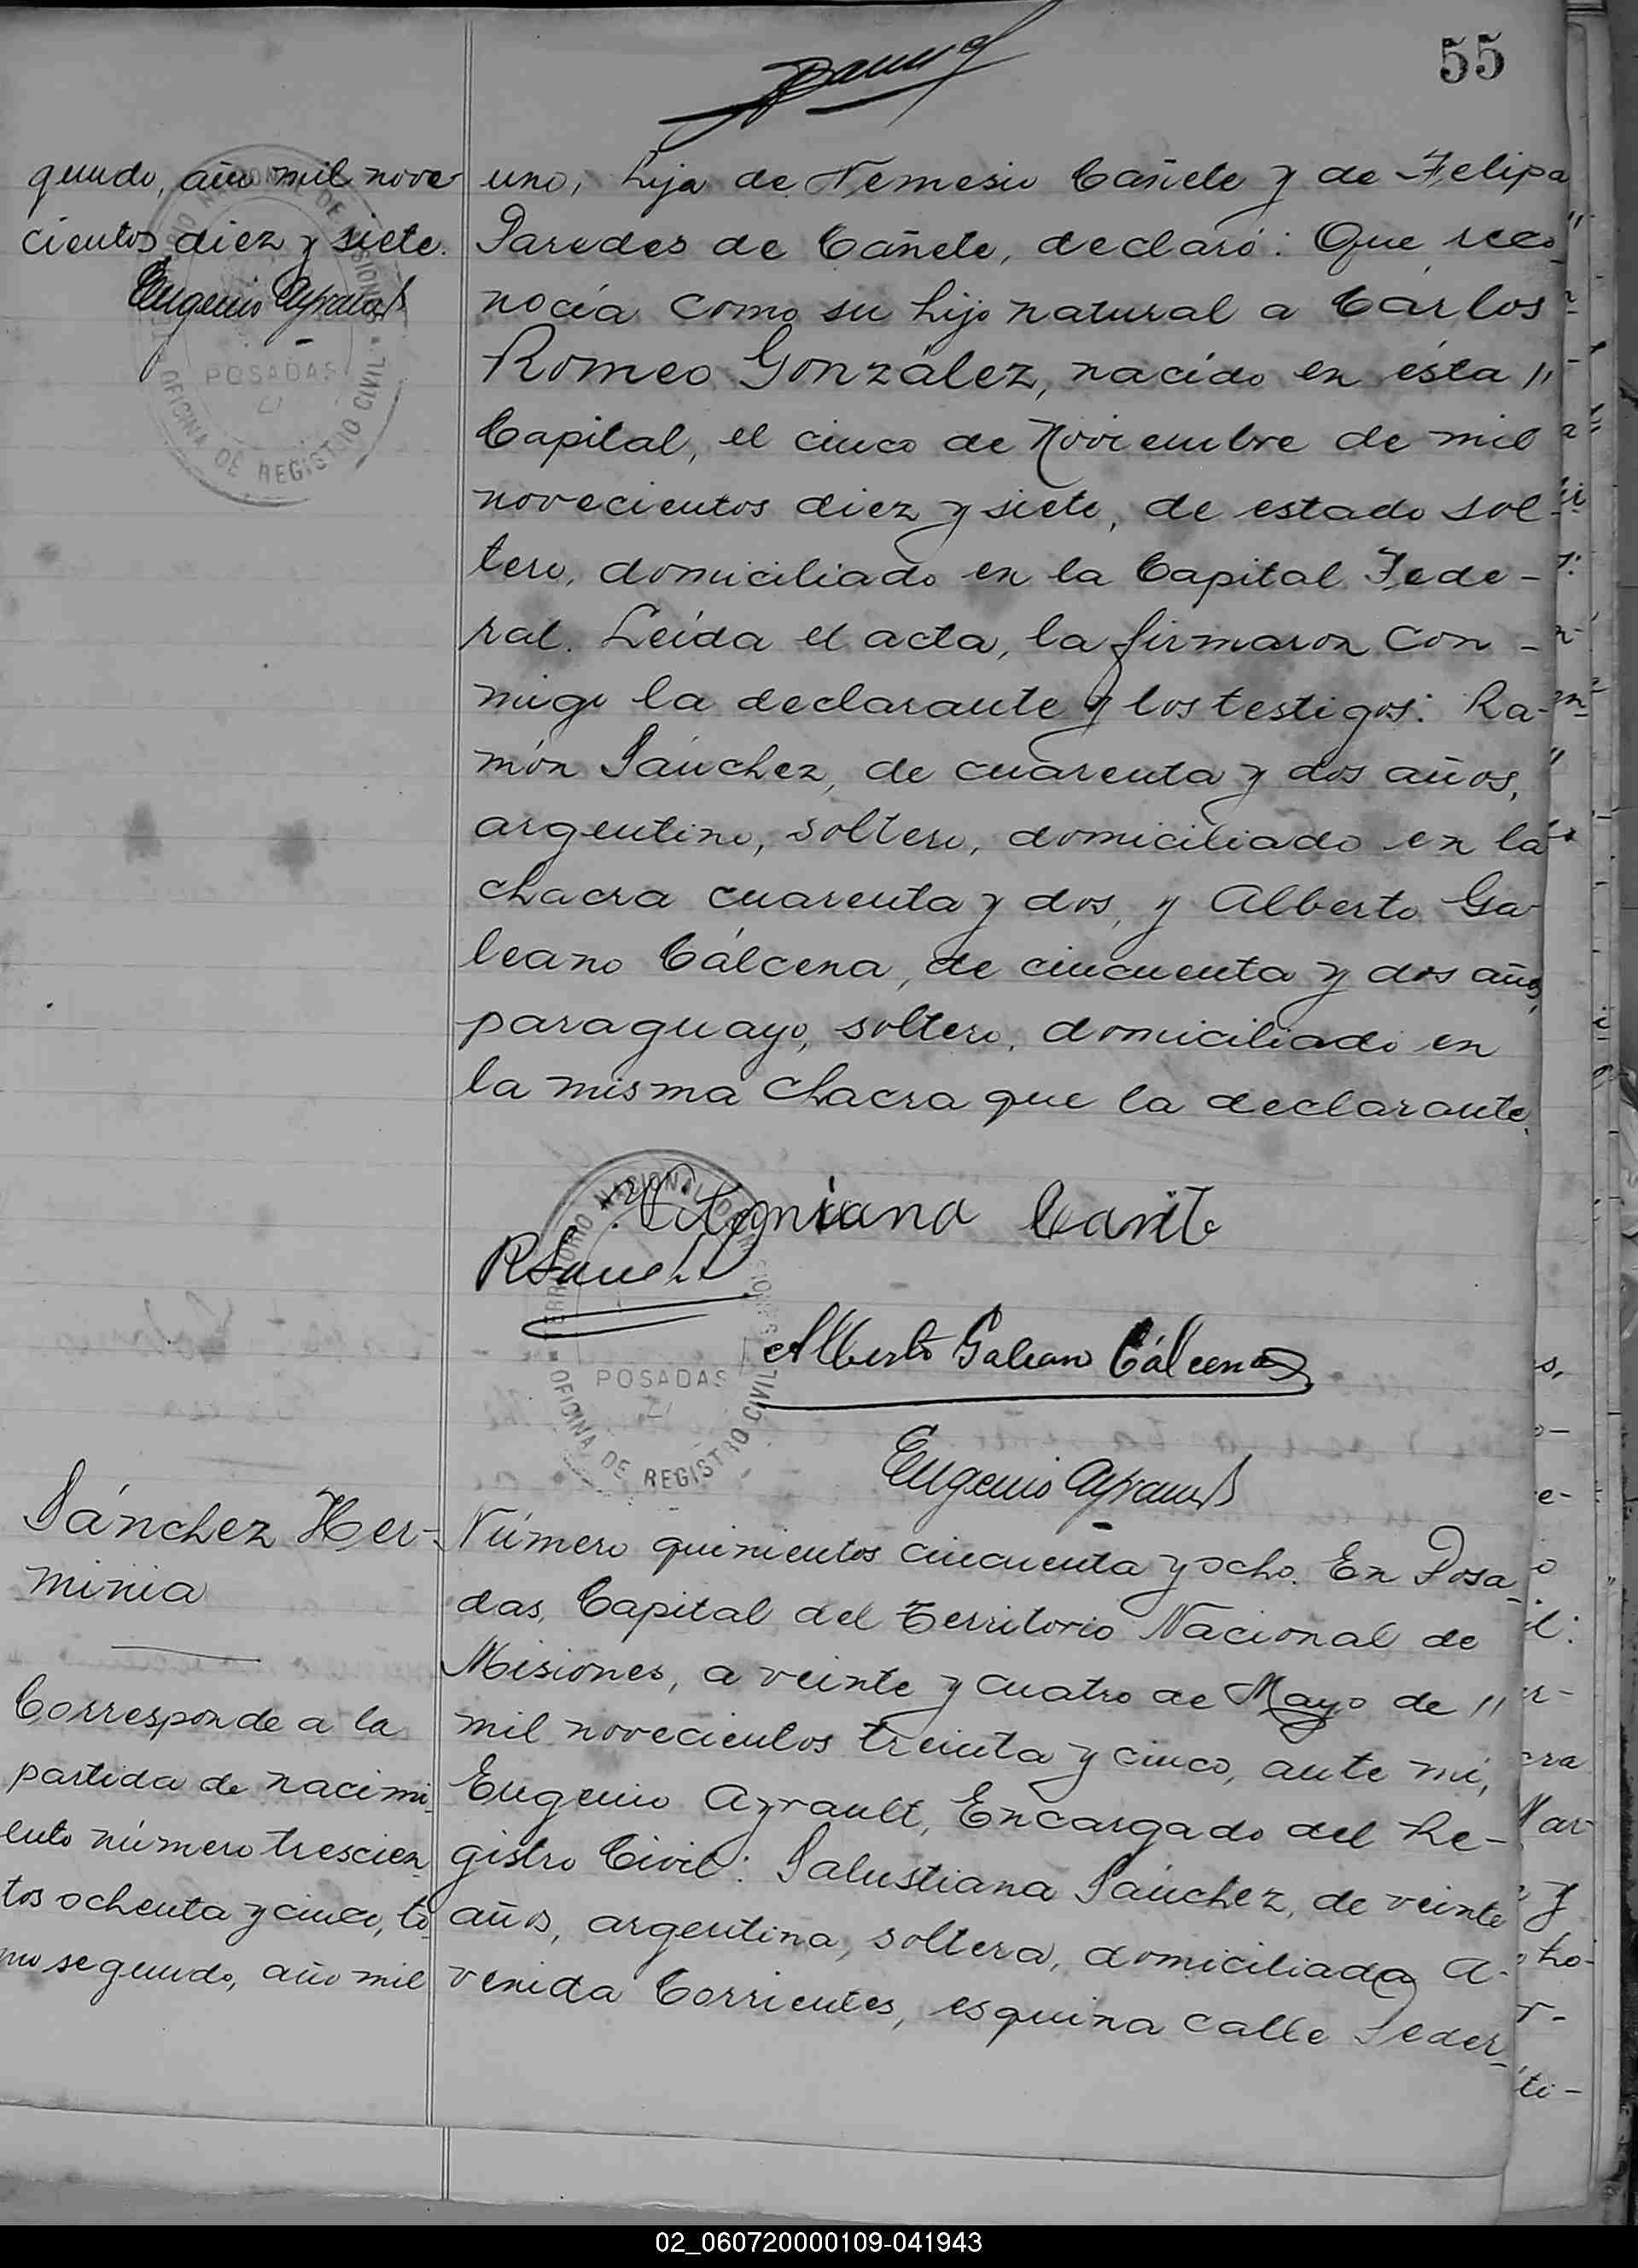 55
gundo, año mil nove-
cientos diez y siete.
Eugenio Ayrault
TERRITORIO NACIONAL DE MISIONES
POSADAS
OFICINA DE REGISTRO CIVIL
uno, hija de Nemesio Cañete y de Felipa
Paredes de Cañete, declaró: Que reco-
nocía como su hijo natural a Cárlos
Romeo González, nacido en ésta "
Capital, el cinco de Noviembre de mil
novecientos diez y siete, de estado sol-
tero, domiciliado en la Capital Fede-
ral. Leída el acta, la firmaron con-
migo la declarante y los testigos: Ra-
món Sánchez, de cuarenta y dos años,
argentino, soltero, domiciliado en la
chacra cuarenta y dos, y Alberto Ga-
leano Cálcena, de cincuenta y dos años,
paraguayo, soltero, domiciliado en
la misma chacra que la declarante.
R Sanchez
Alberto Galeano Cálcena
TERRITORIO NACIONAL DE MISIONES
POSADAS
OFICINA DE REGISTRO CIVIL
Eugenio Ayrault
Sánchez Her-
minia
Corresponde a la
partida de nacimi-
ento número trescien-
tos ochenta y cinco, to-
mo segundo, año mil
Número quinientos cincuenta y ocho. En Posa-
das, Capital del Territorio Nacional de
Misiones, a veinte y cuatro de Mayo de "
mil novecientos treinta y cinco, ante mí,
Eugenio Ayrault, Encargado del Re-
gistro Civil: Salustiana Sánchez, de veinte
años, argentina, soltera, domiciliada A-
venida Corrientes, esquina calle Feder-
02_060720000109-041943